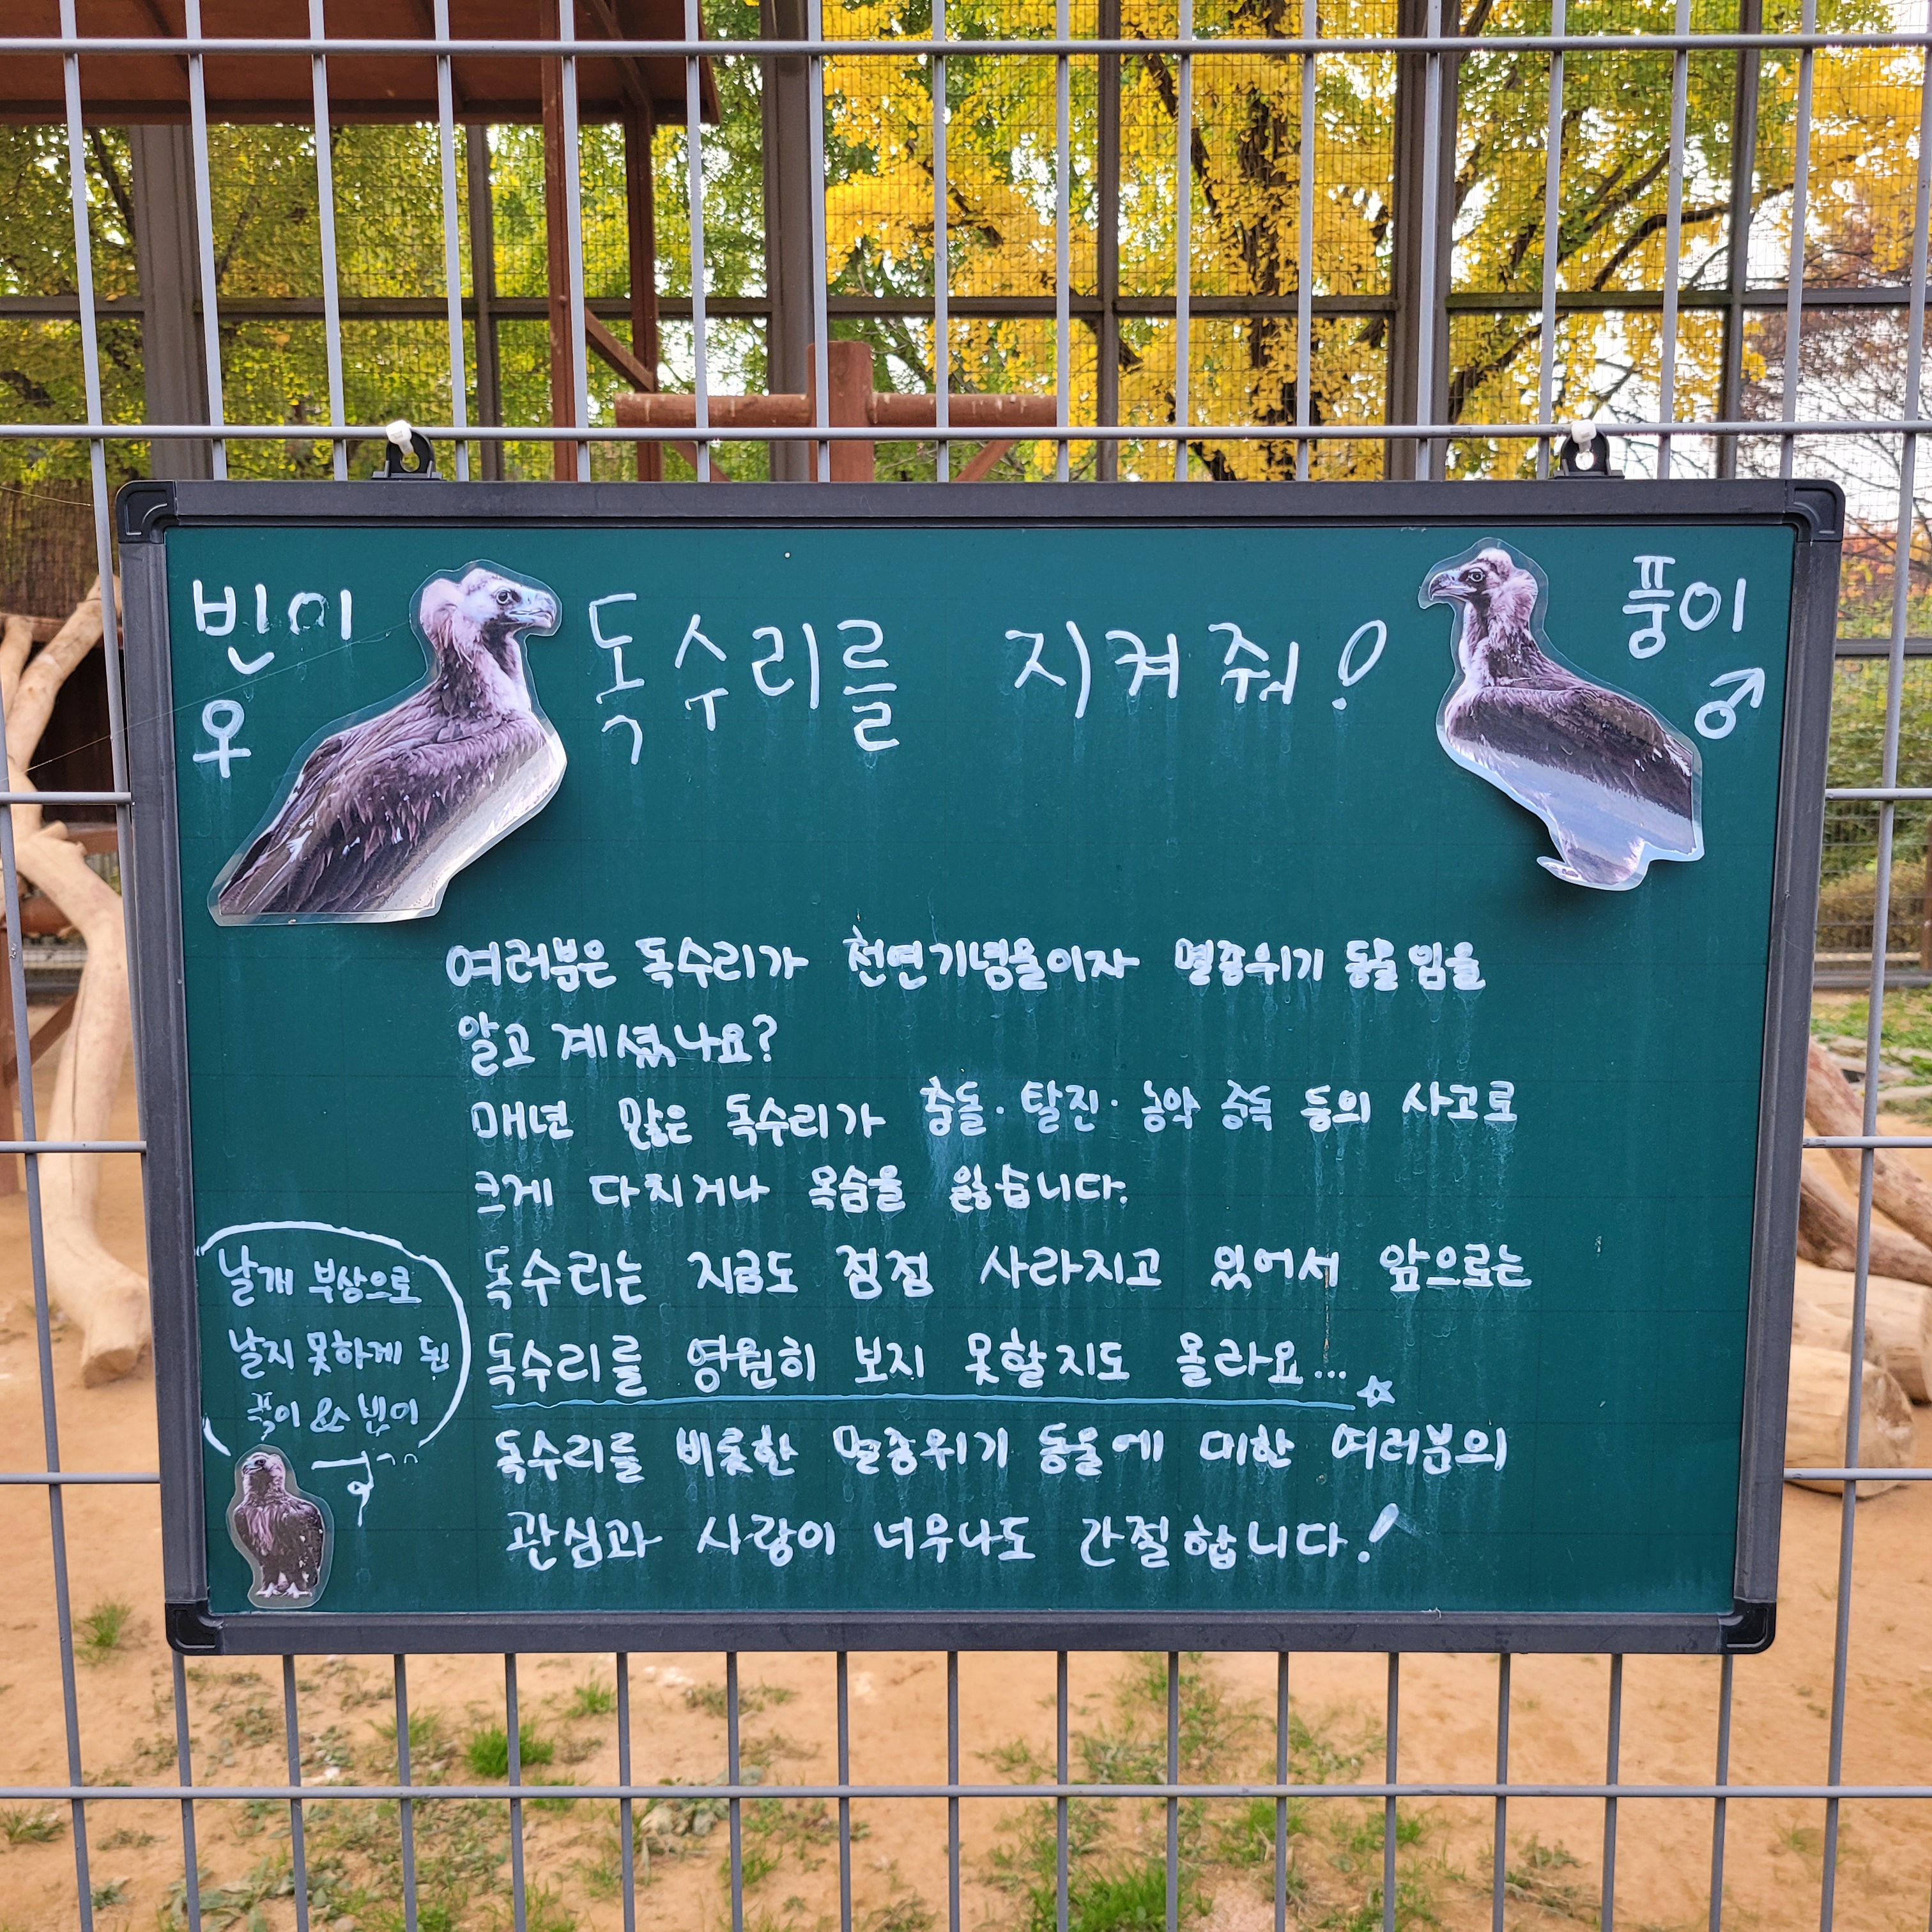 빈이
♀
독수리를 지켜줘!
풍이
♂
여러분은 독수리가 천연기념물이자 멸종위기 동물임을
알고 계셨나요?
매년 많은 독수리가 충돌·탈진·농약 중독 등의 사고로
크게 다치거나 목숨을 잃습니다.
독수리는 지금도 점점 사라지고 있어서 앞으로는
독수리를 영원히 보지 못할지도 몰라요...☆
독수리를 비롯한 멸종위기 동물에 대한 여러분의
관심과 사랑이 너무나도 간절합니다!
날개 부상으로
날지 못하게 된
풍이 & 빈이